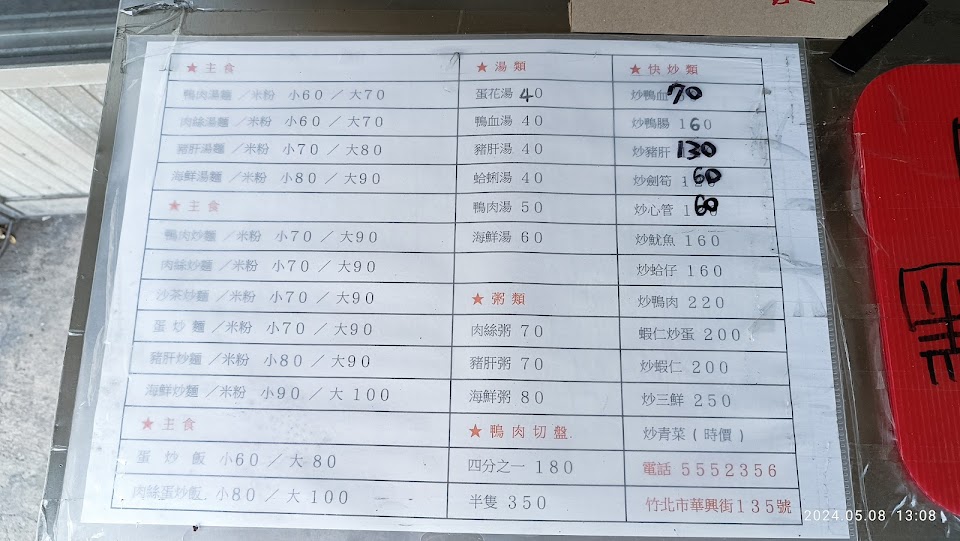 ★主食
鴨肉湯麵／米粉 小60／大70
肉絲湯麵／米粉 小60／大70
豬肝湯麵／米粉 小70／大80
海鮮湯麵／米粉 小80／大90
★主食
鴨肉炒麵／米粉 小70／大90
肉絲炒麵／米粉 小70／大90
沙茶炒麵／米粉 小70／大90
蛋炒麵／米粉 小70／大90
豬肝炒麵／米粉 小80／大90
海鮮炒麵／米粉 小90／大100
★主食
蛋炒飯 小60／大80
肉絲蛋炒飯 小80／大100
★湯類
蛋花湯 40
鴨血湯 40
豬肝湯 40
蛤蜊湯 40
鴨肉湯 50
海鮮湯 60
★粥類
肉絲粥 70
豬肝粥 70
海鮮粥 80
★鴨肉切盤.
四分之一 180
半隻 350
★快炒類
炒鴨血70
炒鴨腸 160
炒豬肝 130
炒劍筍 160
炒心管 160
炒魷魚 160
炒蛤仔 160
炒鴨肉 220
蝦仁炒蛋 200
炒蝦仁 200
炒三鮮 250
炒青菜(時價)
電話 5552356
竹北市華興街135號
2024.05.08 13:08